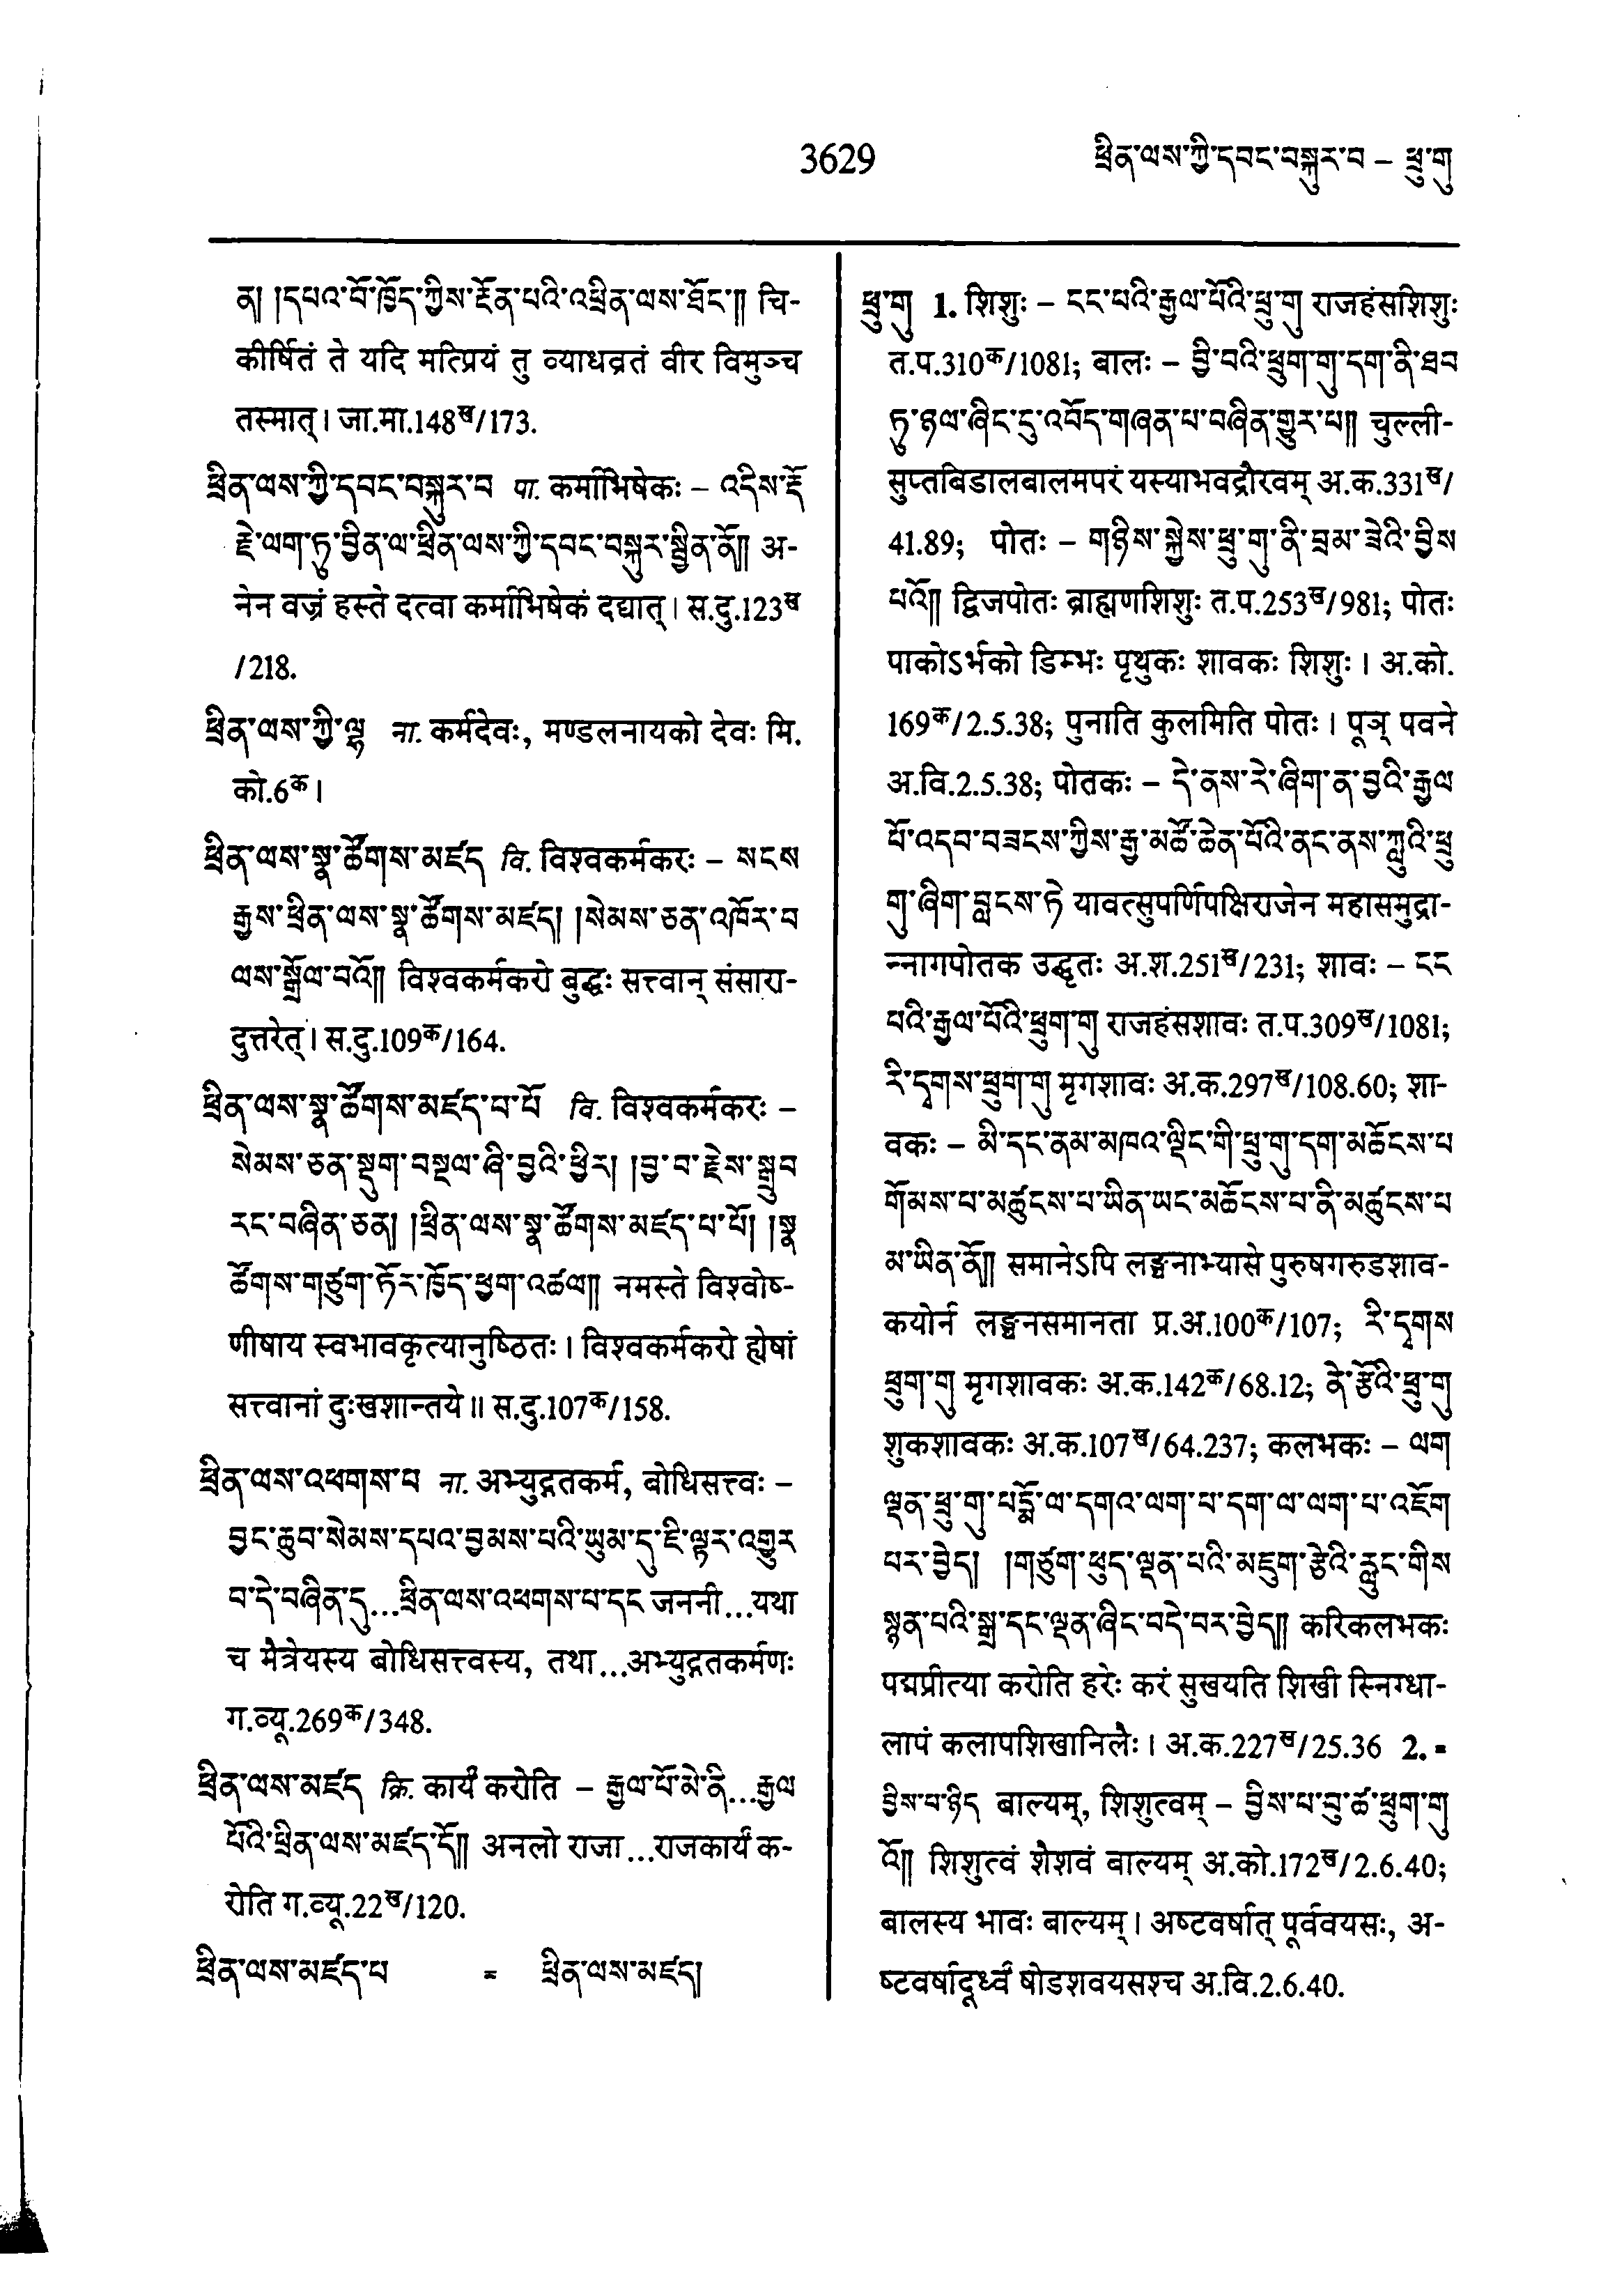 3629
ཕྲིན་ལས་ཀྱི་དབང་བསྐུར་བ – ཕྲུ་གུ
ན། །དཔའ་བོ་ཁྱོད་ཀྱིས་རྔོན་པའི་འཕྲིན་ལས་ཐོང་།། चि-
कीर्षितं ते यदि मत्प्रियं तु व्याधव्रतं वीर विमुञ्च
तस्मात्। जा.मा.148ख/173.
ཕྲིན་ལས་ཀྱི་དབང་བསྐུར་བ पा. कर्माभिषेकः – འདིས་རྡོ
རྗེ་ལག་ཏུ་བྱིན་ལ་ཕྲིན་ལས་ཀྱི་དབང་བསྐུར་སྦྱིན་ནོ།། अ-
नेन वज्रं हस्ते दत्वा कर्माभिषेकं दद्यात्। स.दु.123ख
/218.
ཕྲིན་ལས་ཀྱི་ལྷ ना. कर्मदेवः, मण्डलनायको देवः मि.
को.6क।
ཕྲིན་ལས་སྣ་ཚོགས་མཛད वि. विश्वकर्मकरः – སངས
རྒྱས་ཕྲིན་ལས་སྣ་ཚོགས་མཛད། །སེམས་ཅན་འཁོར་བ
ལས་སྒྲོལ་བའོ།། विश्वकर्मकरो बुद्धः सत्त्वान् संसारा-
दुत्तरेत्। स.दु.109क/164.
ཕྲིན་ལས་སྣ་ཚོགས་མཛད་པ་པོ वि. विश्वकर्मकरः –
སེམས་ཅན་སྡུག་བསྔལ་ཞི་བྱའི་ཕྱིར། །བྱ་བ་རྗེས་སྒྲུབ
རང་བཞིན་ཅན། །ཕྲིན་ལས་སྣ་ཚོགས་མཛད་པ་པོ། །སྣ
ཚོགས་གཙུག་ཏོར་ཁྱོད་ཕྱག་འཚལ།། नमस्ते विश्वोष-
णीषाय स्वभावकृत्यानुष्ठितः। विश्वकर्मकरो ह्येषां
सत्त्वानां दुःखशान्तये॥ स.दु.107क/158.
ཕྲིན་ལས་འཕགས་པ ना. अभ्युद्गतकर्म, बोधिसत्त्वः –
བྱང་ཆུབ་སེམས་དཔའ་བྱམས་པའི་ཡུམ་དུ་ཇི་ལྟར་འགྱུར
བ་དེ་བཞིན་དུ...ཕྲིན་ལས་འཕགས་པ་དང जननी...यथा
च मैत्रेयस्य बोधिसत्त्वस्य, तथा...अभ्युद्गतकर्मणः
ग.व्यू.269क/348.
ཕྲིན་ལས་མཛད क्रि. कार्यं करोति – རྒྱལ་པོ་མེ་ནི...རྒྱལ
པོའི་ཕྲིན་ལས་མཛད་དོ།། अनलो राजा...राजकार्यं क-
रोति ग.व्यू.22ख/120.
ཕྲིན་ལས་མཛད་པ = ཕྲིན་ལས་མཛད།
ཕྲུ་གུ 1. शिशुः – ངང་པའི་རྒྱལ་པོའི་ཕྲུ་གུ राजहंसशिशुः
त.प.310क/1081; बालः – བྱི་བའི་ཕྲུག་གུ་དག་ནི་ཐབ
ཏུ་ཉལ་ཞིང་དུ་འབོད་གཞན་པ་བཞིན་གྱུར་པ།། चुल्ली-
सुप्तबिडालबालमपरं यस्याभवद्रौरवम् अ.क.331ख/
41.89; पोतः – གཉིས་སྐྱེས་ཕྲུ་གུ་ནི་བྲམ་ཟེའི་བྱིས
པའོ།། द्विजपोतः ब्राह्मणशिशुः त.प.253ख/981; पोतः
पाकोऽर्भको डिम्भः पृथुकः शावकः शिशुः। अ.को.
169क/2.5.38; पुनाति कुलमिति पोतः। पूञ् पवने
अ.वि.2.5.38; पोतकः – དེ་ནས་རེ་ཞིག་ན་བྱའི་རྒྱལ
པོ་འདབ་བཟངས་ཀྱིས་རྒྱ་མཚོ་ཆེན་པོའི་ནང་ནས་ཀླུའི་ཕྲུ
གུ་ཞིག་བླངས་ཏེ यावत्सुपर्णिपक्षिराजेन महासमुद्रा-
न्नागपोतक उद्धृतः अ.श.251ख/231; शावः – ངང
པའི་རྒྱལ་པོའི་ཕྲུག་གུ राजहंसशावः त.प.309ख/1081;
རི་དྭགས་ཕྲུག་གུ मृगशावः अ.क.297ख/108.60; शा-
वकः – མི་དང་ནམ་མཁའ་ལྡིང་གི་ཕྲུ་གུ་དག་མཆོངས་པ
གོམས་པ་མཚུངས་པ་ཡིན་ཡང་མཆོངས་པ་ནི་མཚུངས་པ
མ་ཡིན་ནོ།། समानेऽपि लङ्घनाभ्यासे पुरुषगरुडशाव-
कयोर्न लङ्घनसमानता प्र.अ.100क/107; རི་དྭགས
ཕྲུག་གུ मृगशावकः अ.क.142क/68.12; ནེ་ཙོའི་ཕྲུ་གུ
शुकशावकः अ.क.107ख/64.237; कलभकः – ལག
ལྡན་ཕྲུ་གུ་པདྨོ་ལ་དགའ་ལག་པ་དག་ལ་ལག་པ་འཇོག
པར་བྱེད། །གཙུག་ཕུད་ལྡན་པའི་མཇུག་རྩེའི་རླུང་གིས
སྙན་པའི་སྒྲ་དང་ལྡན་ཞིང་བདེ་བར་བྱེད།། करिकलभकः
पद्मप्रीत्या करोति हरेः करं सुखयति शिखी स्निग्धा-
लापं कलापशिखानिलैः। अ.क.227ख/25.36 2. =
བྱིས་པ་ཉིད बाल्यम्, शिशुत्वम् – བྱིས་པ་བུ་ཚ་ཕྲུག་གུ
འོ།། शिशुत्वं शैशवं वाल्यम् अ.को.172ख/2.6.40;
बालस्य भावः बाल्यम्। अष्टवर्षात् पूर्ववयसः, अ-
ष्टवर्षादूर्ध्वं षोडशवयसश्च अ.वि.2.6.40.